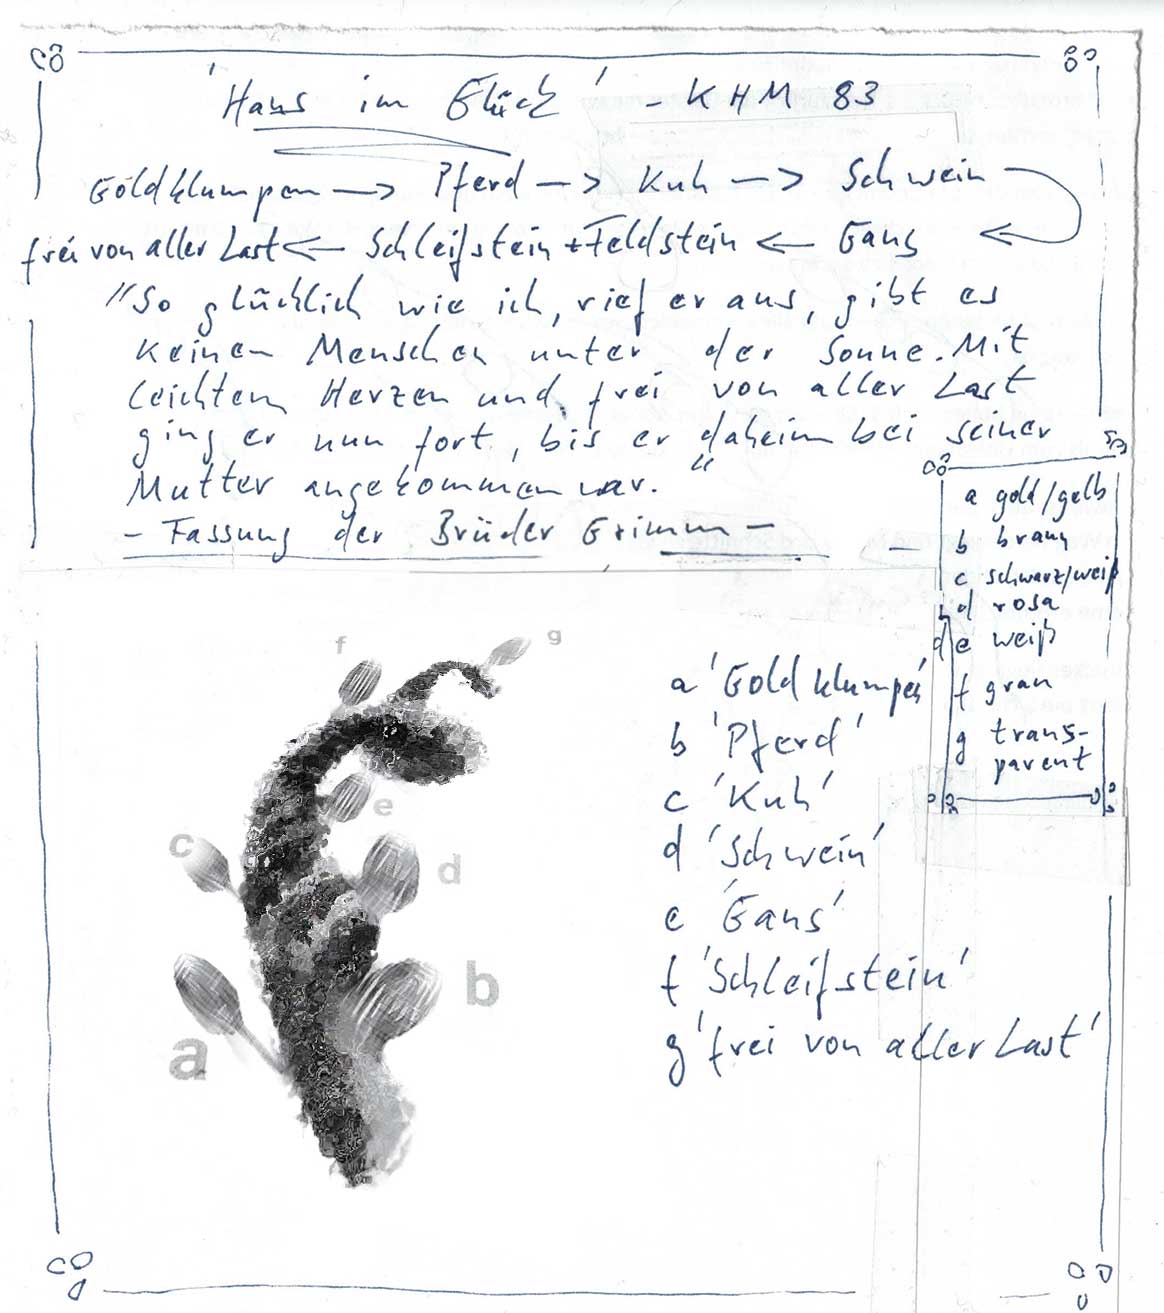 'Hans im Glück' - KHM 83
Goldklumpen —> Pferd —> Kuh —> Schwein
frei von aller Last <— Schleifstein + Feldstein <— Gans <—
"So glücklich wie ich, rief er aus, gibt es
keinen Menschen unter der Sonne. Mit
leichtem Herzen und frei von aller Last
ging er nun fort, bis er daheim bei seiner
Mutter angekommen war."
- Fassung der Brüder Grimm -
a gold/gelb
b braun
c schwarz/weiß
d rosa
e weiß
f grau
g trans-
parent
a 'Goldklumpen'
b 'Pferd'
c 'Kuh'
d 'Schwein'
e 'Gans'
f 'Schleifstein'
g 'frei von aller Last'
f
g
e
c
d
b
a